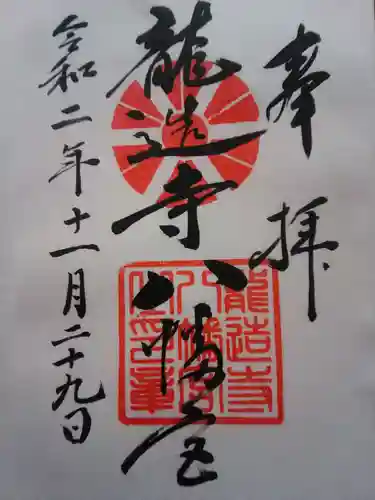 奉拝
龍造寺八幡宮
令和二年十一月二十九日
龍造寺
八幡宮